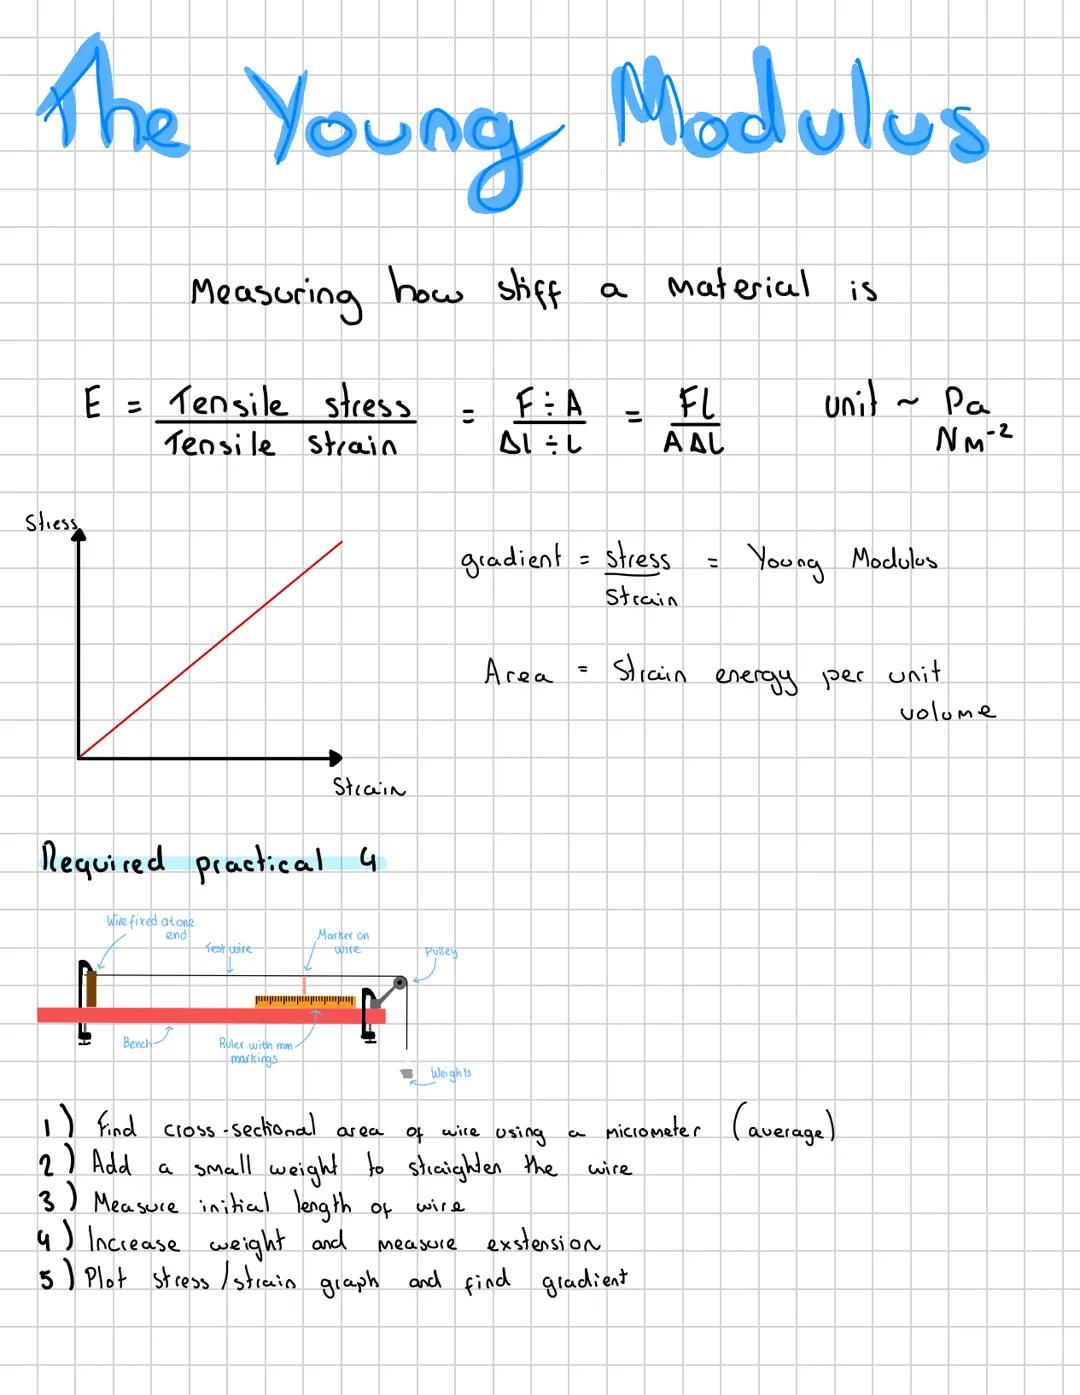 The Young Modulus
Measuring how stiff a material is
E = Tensile stress / Tensile strain = F ÷ A / Δl ÷ L = FL / AΔL unit ~ Pa
Nm⁻²
Stress
gradient = stress / strain = Young Modulus
Area = Strain energy per unit
volume
Strain
Required practical 4
Wire fixed at one
end
Test wire
Marker on
wire
Pulley
Bench
Ruler with mm
markings
Weights
1) Find cross-sectional area of wire using a micrometer (average)
2) Add a small weight to straighten the wire
3) Measure initial length of wire
4) Increase weight and measure exstension
5) Plot stress/strain graph and find gradient